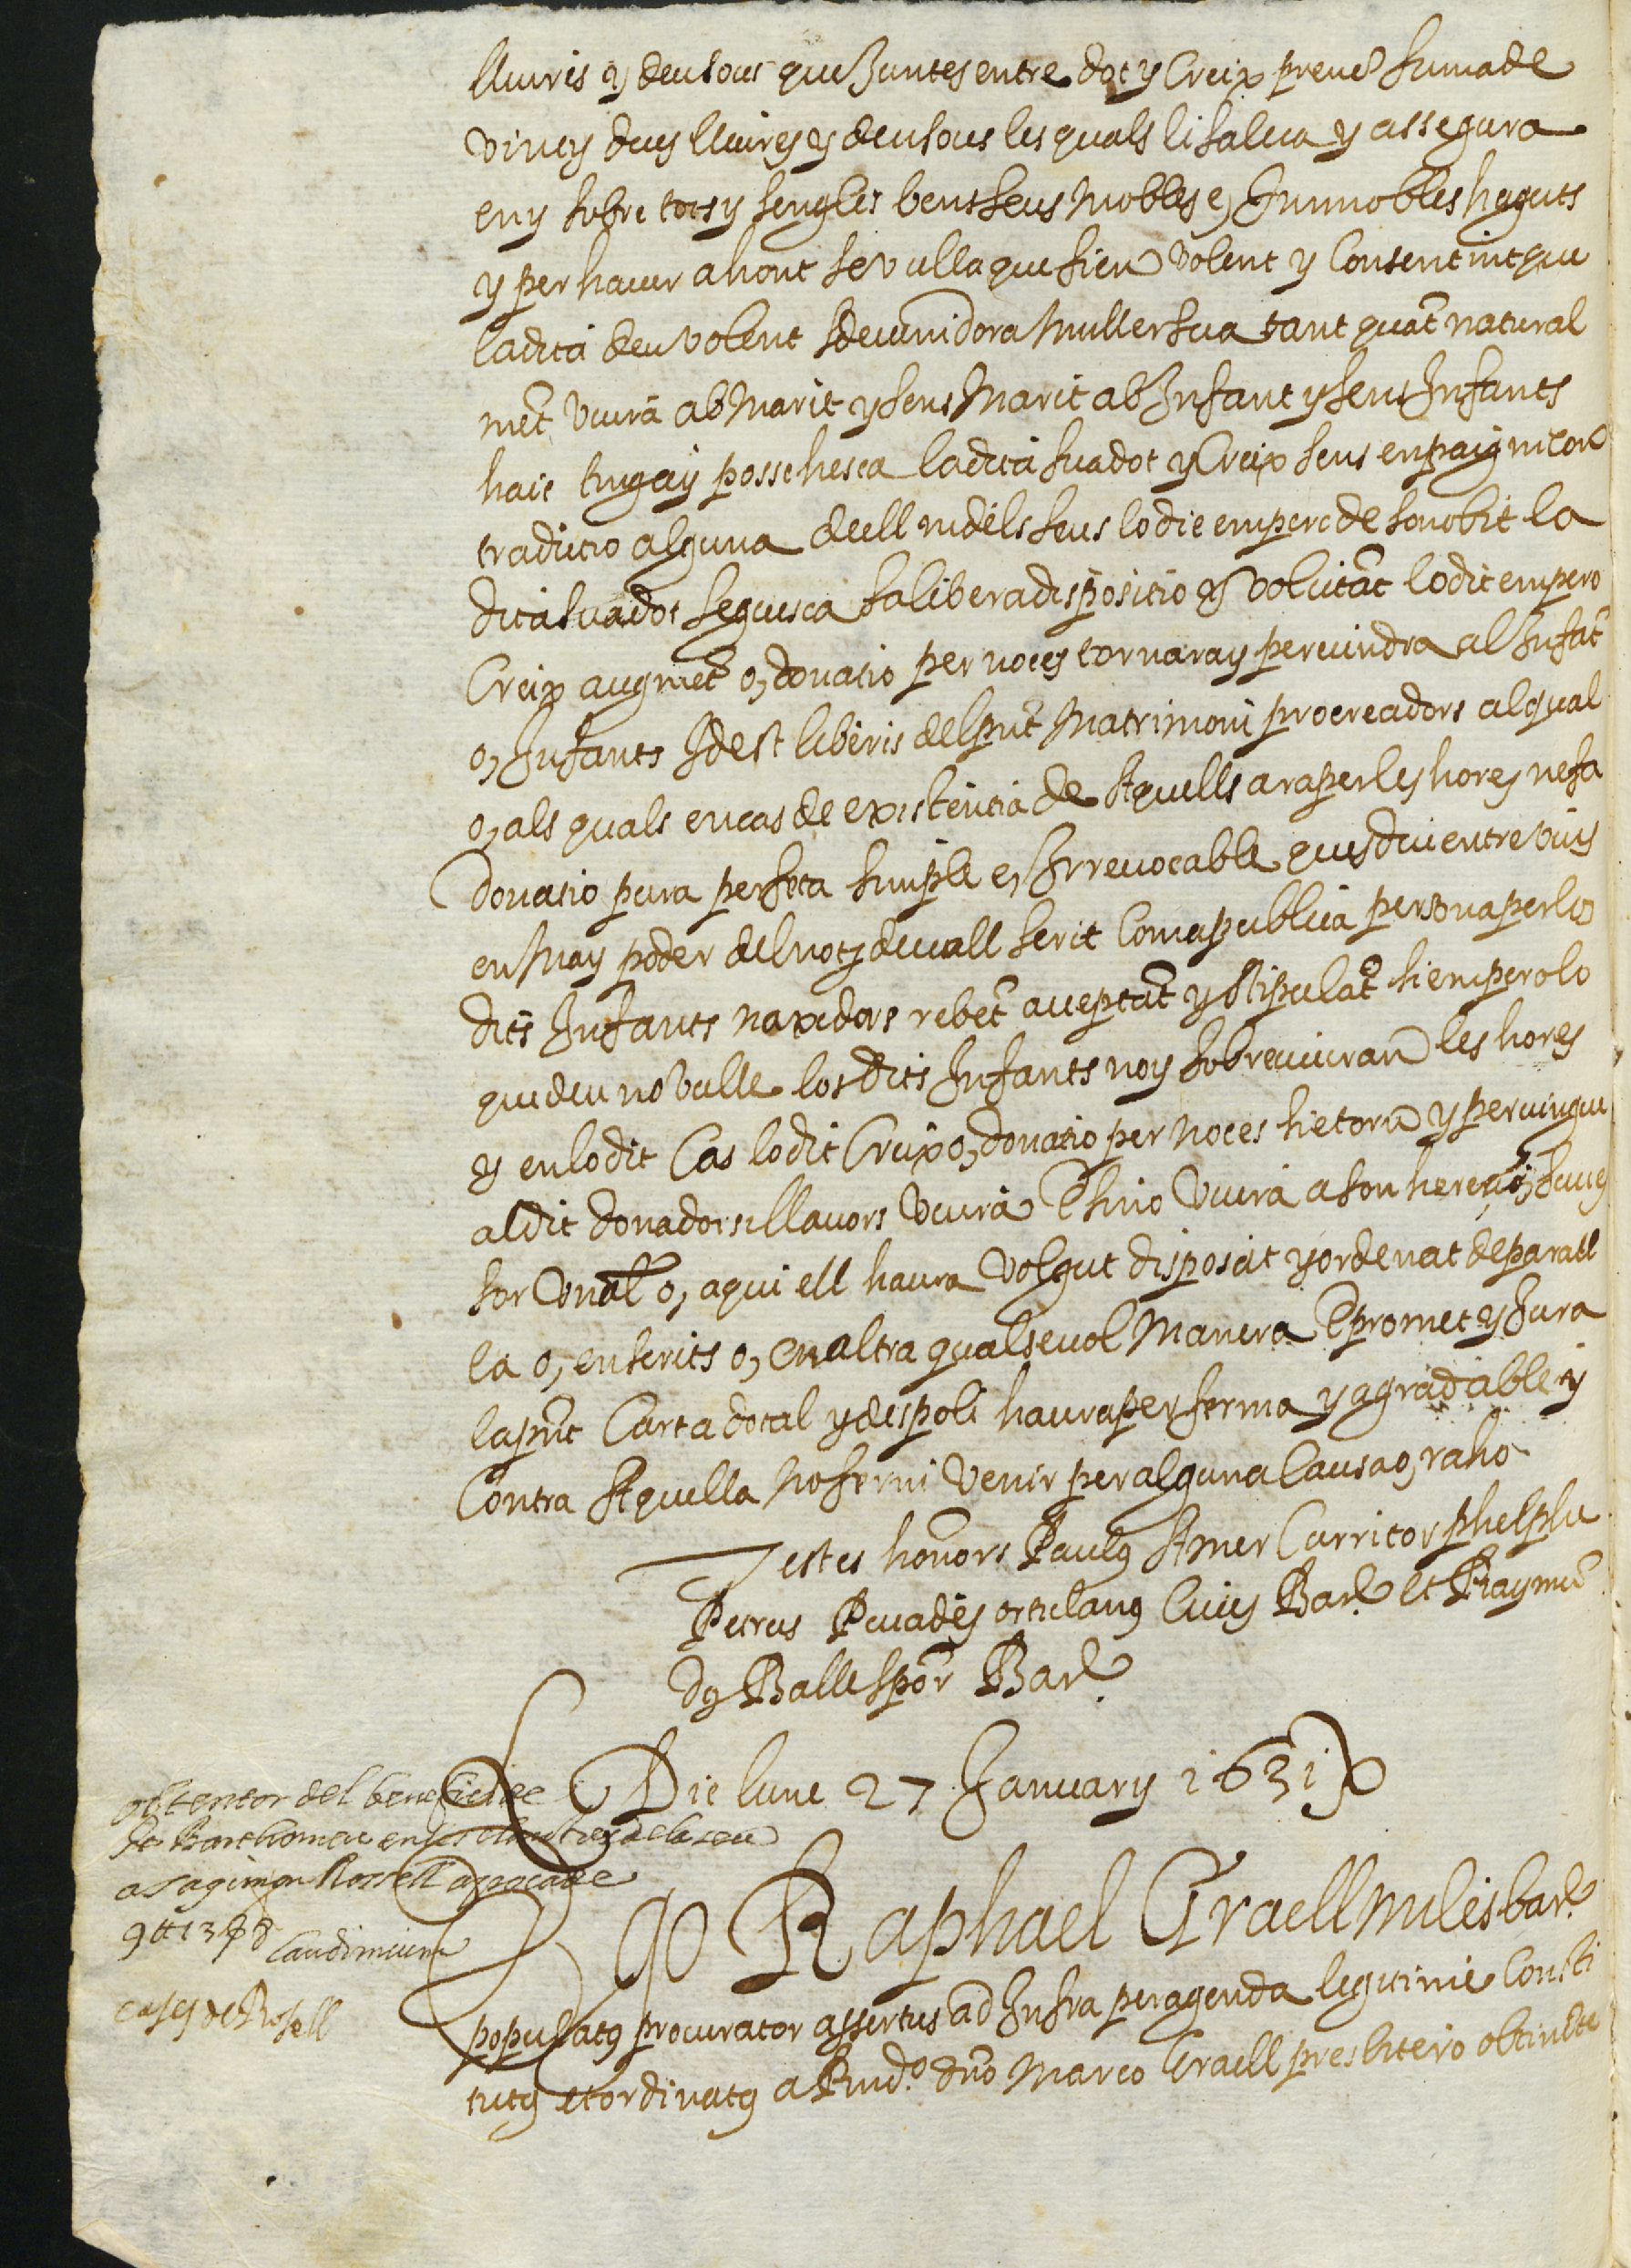 lliures y deu sous que Juntes entre dot y Creix preue sumade
vint y dues lliures y deu sous les quals li salua y assegura
en y sobre tots y sengles bens seus mobles e, Inmobles haguts
y per hauer a hont se vulla que sien volent y Consentint que
la dita deu volent sdeuenidora Muller sua tant quāt natural
mēt viura ab Marit y sens Marit ab Infant y sens Infants
haie tinga y possehesca la dita sua dot y Creix sens enpaig ni con
tradictio alguna de ell ni dels seus lo die empero de son obit la
dita sua dot seguesca sa libera dispositio y volūtāt lo dit empero
Creix augmēt o, donatio per noces tornara y peruindra al Infāt
o, Infants Idest liberis del pnt Matrimoni procreadors al qual
o, als quals en cas de existēntia de Aquells ara per les hores ne fa
donatio pura perfeta simple e, Irreuocable ques diu entre viuy
en Ma y poder del not deuall scrit Com a publica persona per los
dits Infants naxedors rebēt acceptāt y stipulāt si empero lo
que deu no vulle los dits Infants noy sobreuiuran les hores
y en lo dit Cas lo dit Creix o, donatio per noces sie torn y peruingue
al dit donador si llauors viura E si no viura a son hereu o, succes
sor vnal o, a qui ell haura volgut disposat y ordenat de parau
la o, en scrits o, en altra qualseuol Manera E promet y Jura
la pnt Carta dotal y despoli haura per ferma y agradable y
Contra Aquella no fer ni venir per alguna Causa o, raho
Testes honors Paulg Amer Curritor phelphe
Petrus Puuades ortulang Ciuis Bare et Raymū
dg Balle spor Bare
Die lune 27 January 1631
obtentor del benefici de
St Barthomeu en les claustres de la seu
a sagimon Rossell apocade
9 ℔ 13 ß 8
Laudimium
cases de Rosell
Ego Raphael Graell miles bare
populatg procurator assertus ad Infra peragenda legitime Consti
tutg et ordinatg a Rndo. dno Marco Graell presbitero obtinēte